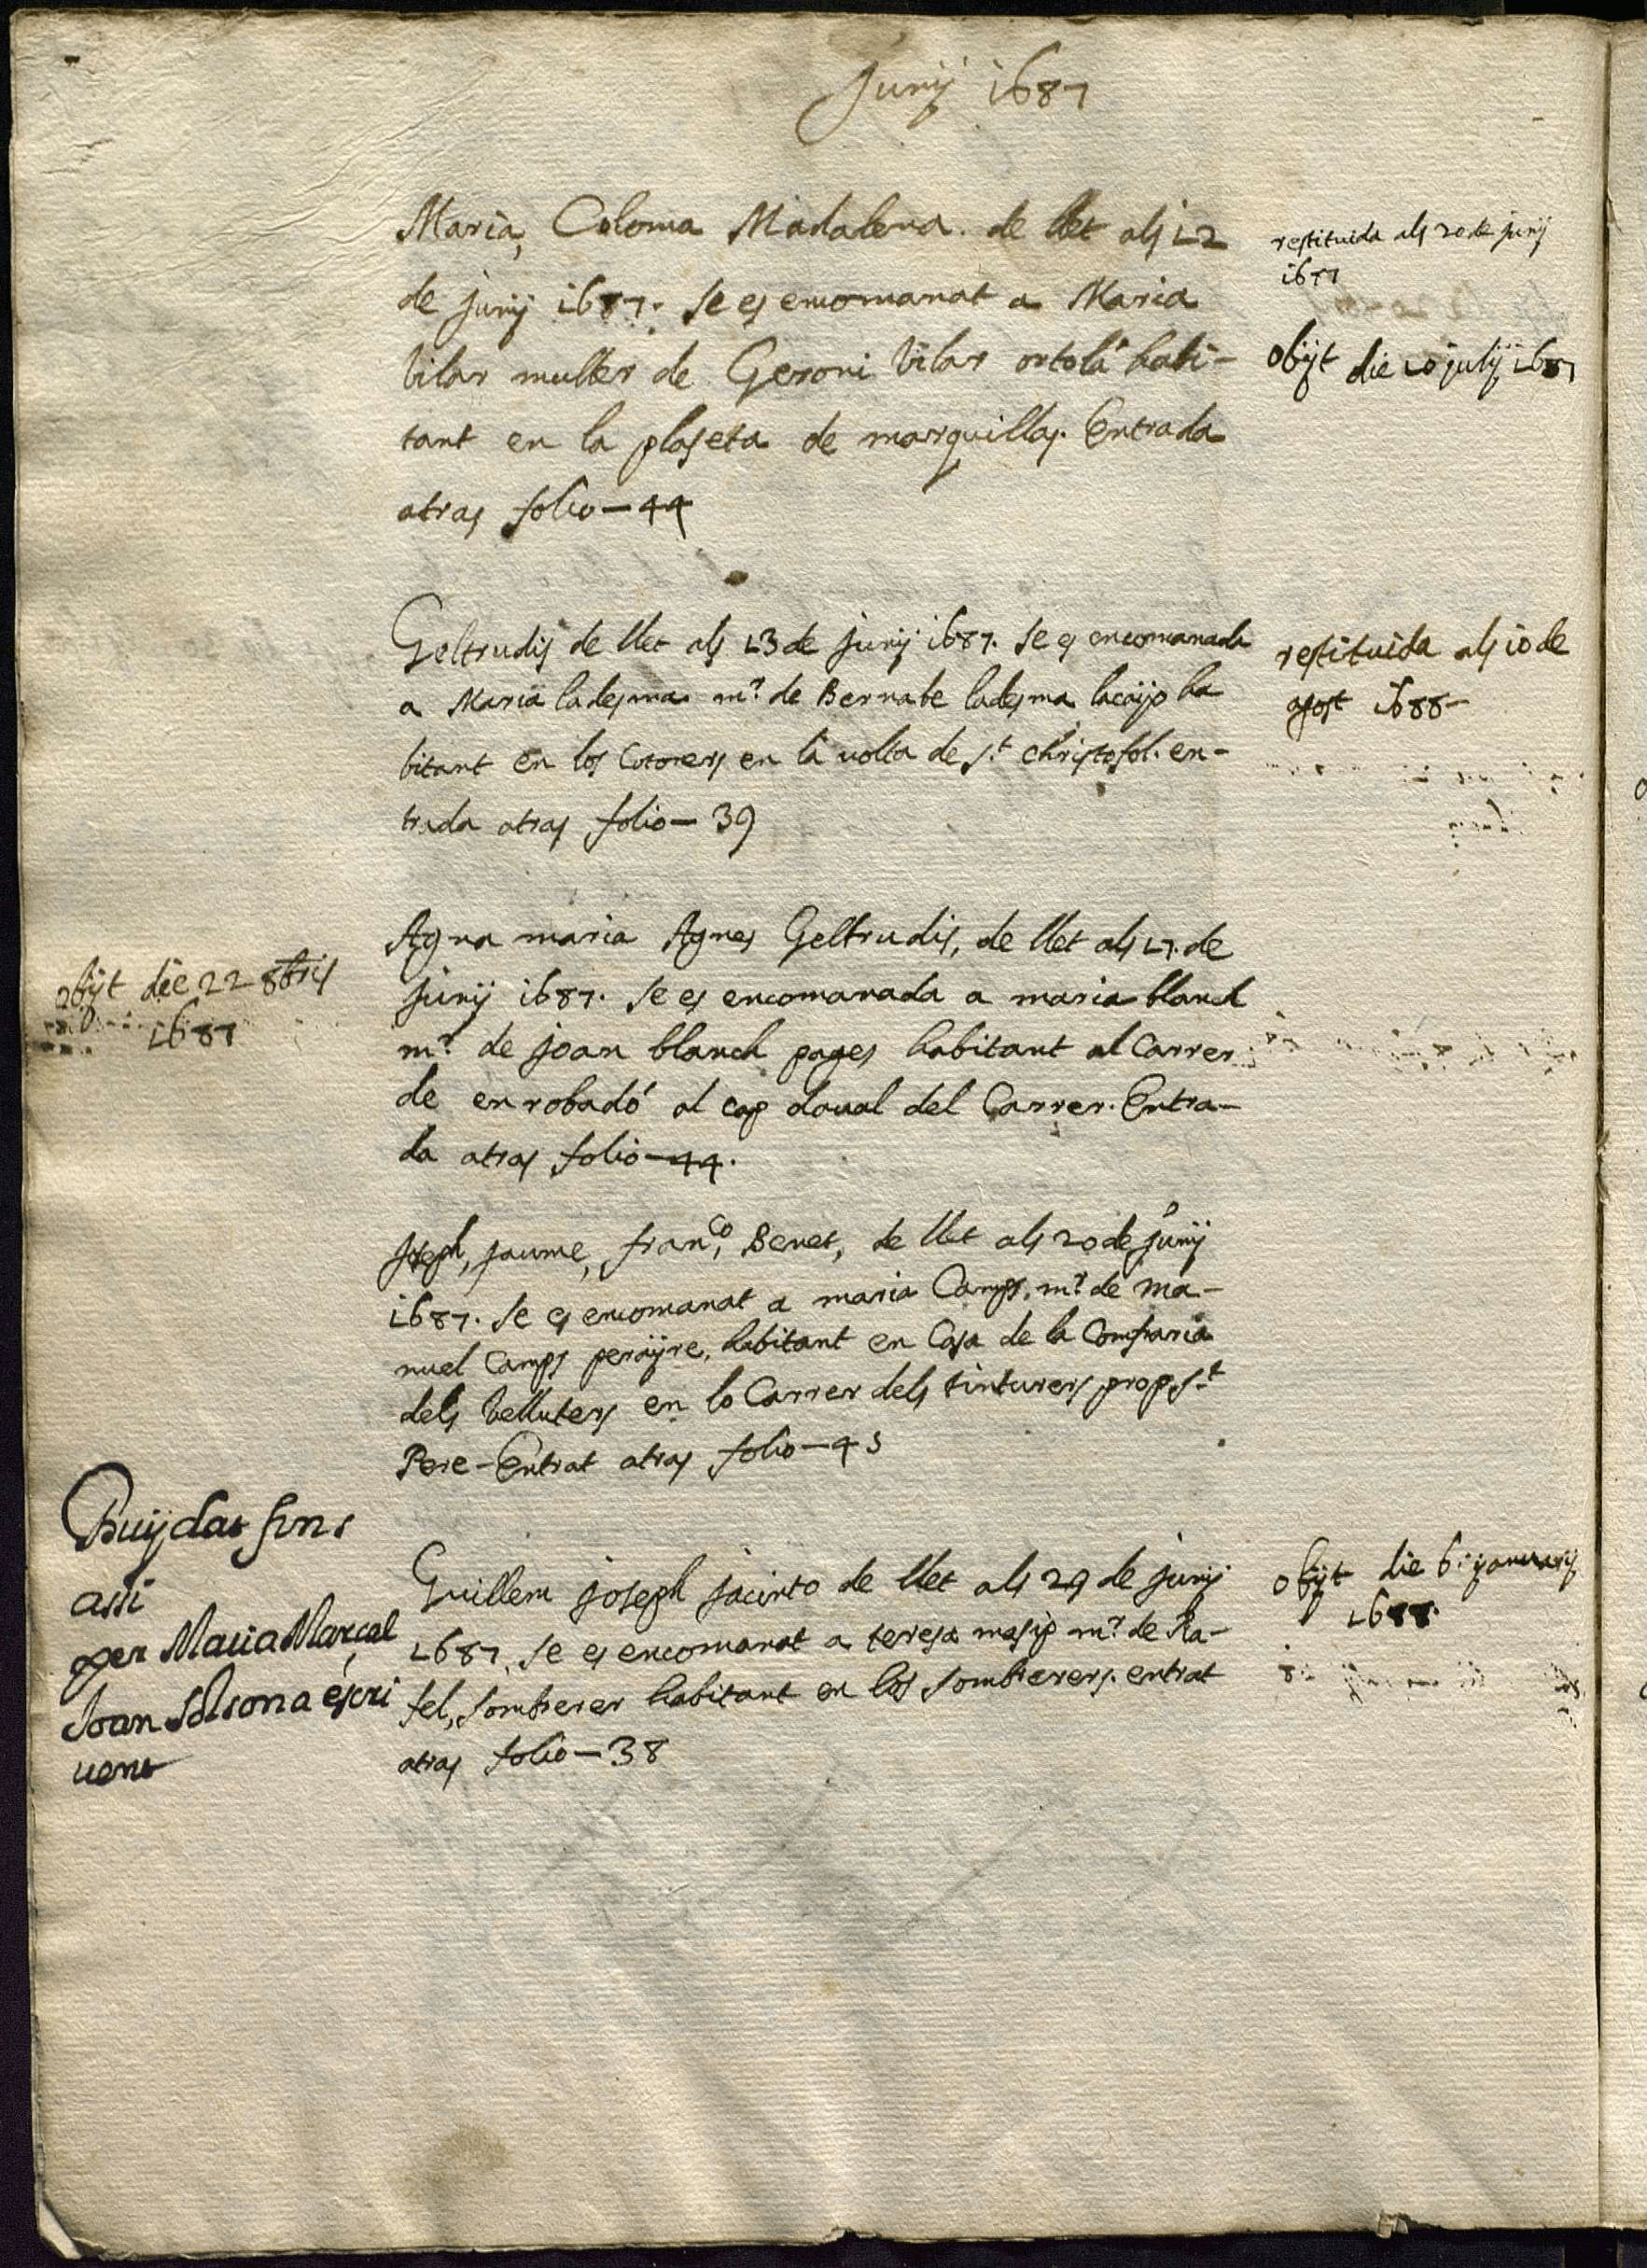 Junij 1687
Maria, Coloma Madalena. de llet als 12
de junij 1687. se es encomanat a Maria
Vilar muller de Geroni Vilar ortolá habi-
tant en la plaseta de marquillas. Entrada
atras folio — 44
restituida als 20 de junij
1687
obijt die 20 julij 1687
Geltrudis de llet als 13 de junij 1687. se es encomanada
a Maria ladesma mr. de Bernabe ladesma lacayo ha
bitant en los Cotoners en la volta de St. christofol. en-
trada atras folio — 39
restituida als 10 de
agost 1688 —
Agna maria Agnes Geltrudis, de llet als 17. de
junij 1687. se es encomanada a maria blanch
mr. de joan blanch pages habitant al Carrer
de en robadó al cap daual del Carrer. Entra-
da atras folio — 44.
obijt die 22 8bris
1687
Joseph, jaume, franco, Benet, de llet als 20 de junij
1687. se es encomanat a maria Camps, mr. de Ma-
nuel Camps perayre, habitant en Casa de la Confraria
dels Velluters en lo Carrer dels tinturers, prop St.
Pere — Entrat atras folio — 43
Guillem joseph jacinto de llet als 29 de junij
1687. se es encomanat a teresa masip mr. de Ra-
fel, sombrerer habitant en los sombrerers. entrat
atras folio — 38
obijt die 6. januarij
1688.
Buydat fins
assi
per Maria Marçal
Joan Solsona escri
uent